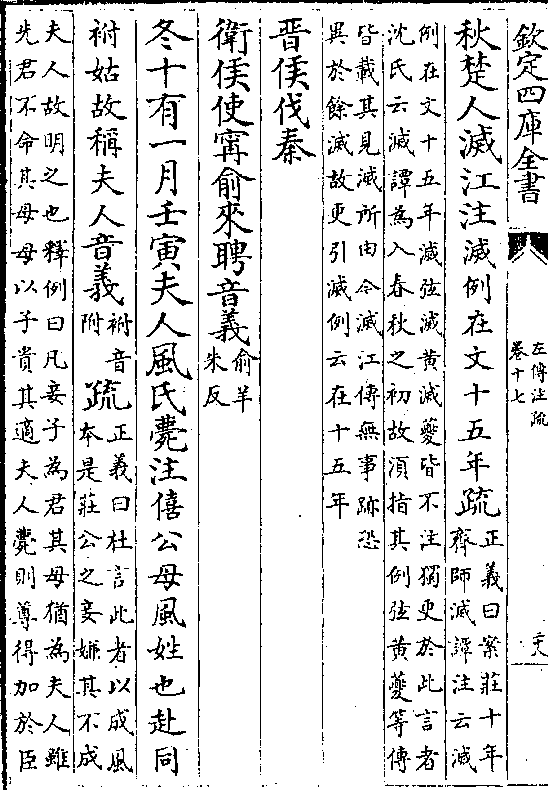 欽定四庫全書
左傳注疏
卷十七
二十八
秋楚人滅江注滅例在文十五年疏
正義曰案莊十年
齊師滅譚注云滅
例在文十五年滅弦滅黄滅夔皆不注獨更於此言者
沈氏云滅譚為入春秋之初故須指其例弦黄夔等傳
皆載其見滅所由今滅江傳無事跡恐
異於餘滅故更引滅例云在十五年
晉侯伐秦
衛侯使甯俞來聘音義
俞羊
朱反
冬十有一月壬寅夫人風氏薨注僖公母風姓也赴同
祔姑故稱夫人音義
祔音
附
疏
正義曰杜言此者以成風
本是莊公之妾嫌其不成
夫人故明之也釋例曰凡妾子為君其母猶為夫人雖
先君不命其母母以子貴其適夫人薨則尊得加於臣